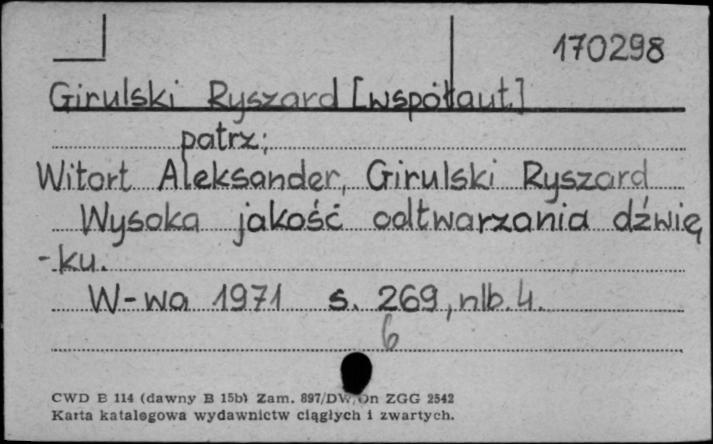 170298
Girulski Ryszard [współaut.]
patrz:
Witort Aleksander, Girulski Ryszard
Wysoka jakość odtwarzania dźwię
-ku.
W-wa 1971 s. 269, nlb. 4.
6
CWD B 114 (dawny B 15b) Zam. 897/DW, On ZGG 2542
Karta katalogowa wydawnictw ciągłych i zwartych.